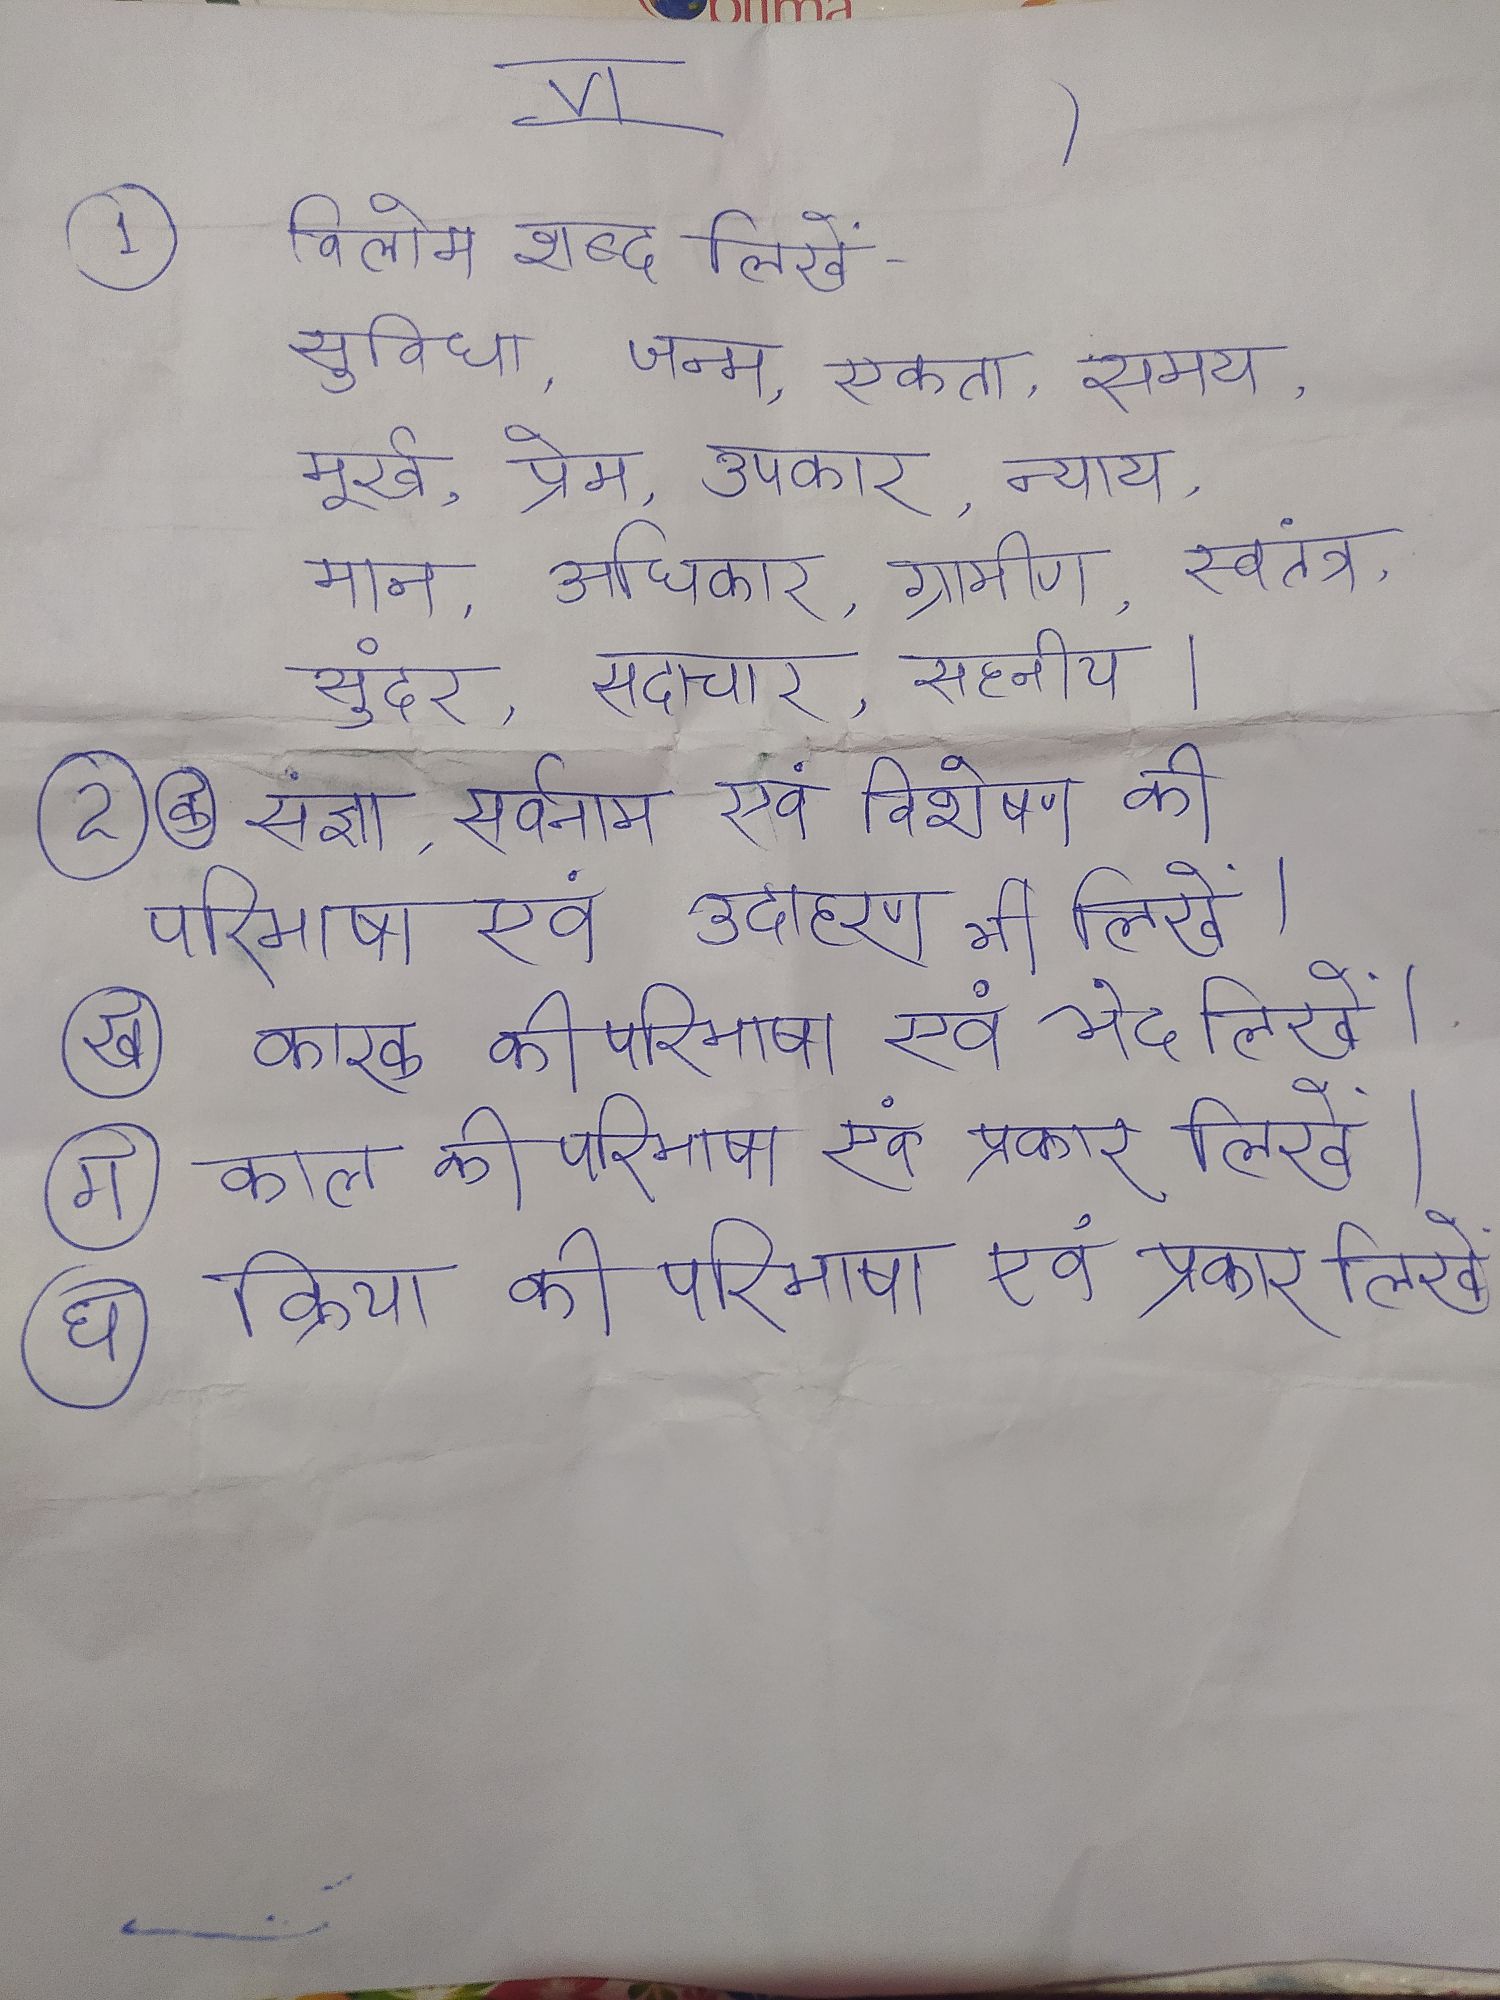 Optima
VI
1 विलोम शब्द लिखें -
सुविधा, जन्म, एकता, समय,
मूर्ख, प्रेम, उपकार, न्याय,
मान, अधिकार, ग्रामीण, स्वतंत्र,
सुंदर, सदाचार, सहनीय ।
2 क संज्ञा, सर्वनाम एवं विशेषण की
परिभाषा एवं उदाहरण भी लिखें ।
ख कारक की परिभाषा एवं भेद लिखें ।
ग काल की परिभाषा एवं प्रकार लिखें ।
घ क्रिया की परिभाषा एवं प्रकार लिखें